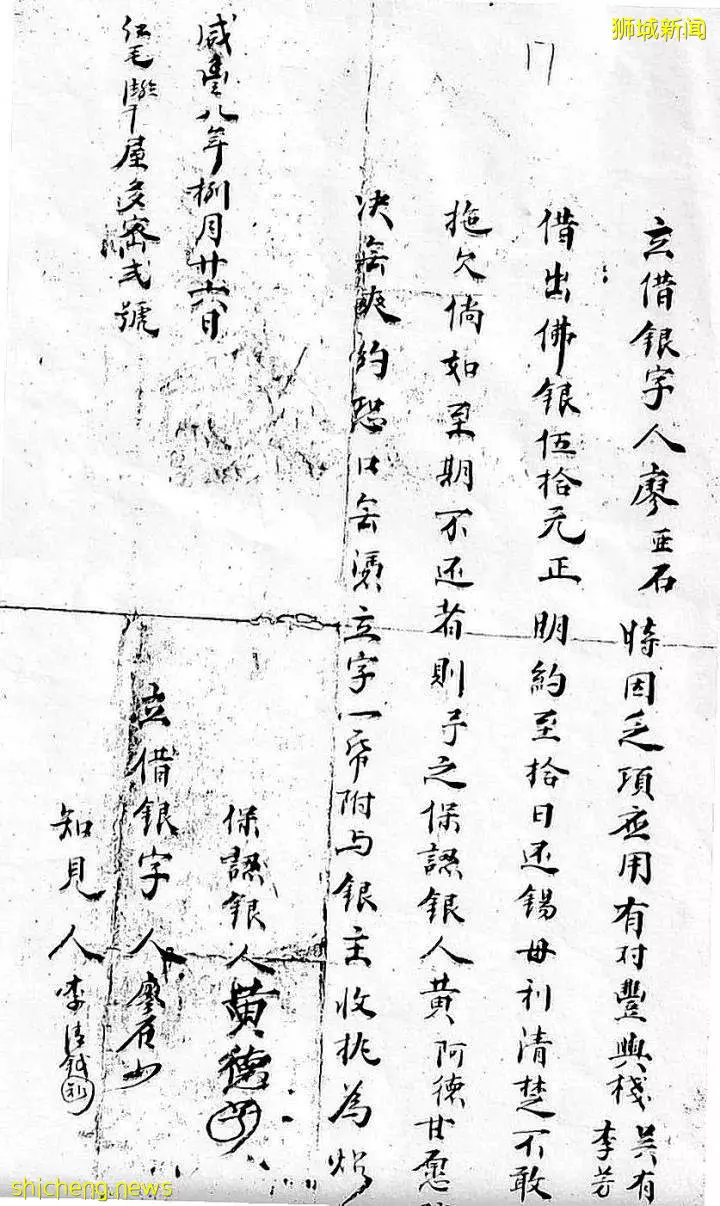 狮城新闻
17
立借銀字人廖亜石時因乏項应用有对豐興棧吴有
李芳
借出佛銀伍拾元正明約至拾日还錫母利清楚不敢
拖欠倘如至期不还者則予之保認銀人黄阿德甘愿
决無爽約恐口無憑立字一帋附与銀主收执為炤
咸豐八年捌月廿六日
紅毛
屋多宻弍號
保認銀人黄德
立借銀字人廖石
知見人李清
shicheng.news